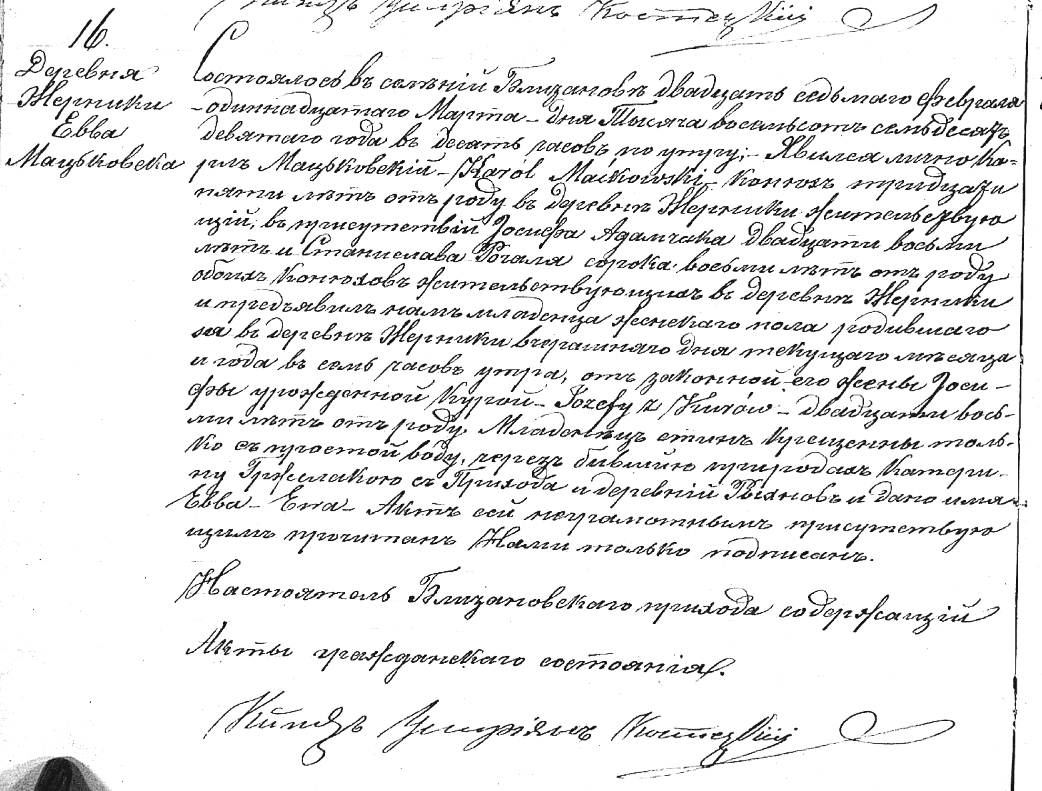 Костецкій
16.
Деревня
Жерники
Евва
Мацьковска
Состоялось въ селѣній Близановѣ двадцать седьмаго февраля
-одиннадцатаго Марта- дня Тысяча восемьсотъ семьдесятъ
девятаго года въ десять часовъ по утру; Явился лично Ка=
рлъ Мацьковскій - Karól Maćkowski - конюхъ тридцати
пяти лѣтъ отъ роду въ деревнѣ Жерники жительствую
щій, въ присутствій Іосифа Адамчака двадцати восьми
лѣтъ и Станислава Рогаля сорока восьми лѣтъ отъ роду
обоихъ конюховъ жительствующихъ въ деревнѣ Жерники
и предъявилъ намъ младенца женскаго пола родившаго
ся въ деревнѣ Жерники вчерашняго дня текущаго мѣсяца
и года въ семь часовъ утра, отъ законной его жены Іоси-
фы урожденной Курой - Józefy z Kurów - двадцати вось-
ми лѣтъ отъ роду. Младенецъ етинъ крещенны толь-
ко съ простой воды, черезъ бывшую природахъ Катери-
ну Гржелакою съ Прихода и деревній и дано имя
Евва - Ewa - Актъ сей неграмотнымъ присутствую
щимъ прочитанъ Нами только подписанъ.
Настоятель Близановскаго прихода содержащій
Акты гражданскаго состоянія.
Ксендзъ Костецкій